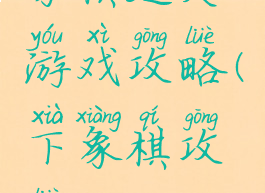 yóu xì gōng lüè
游戏攻略(
xià xiàng qí gōng
下象棋攻